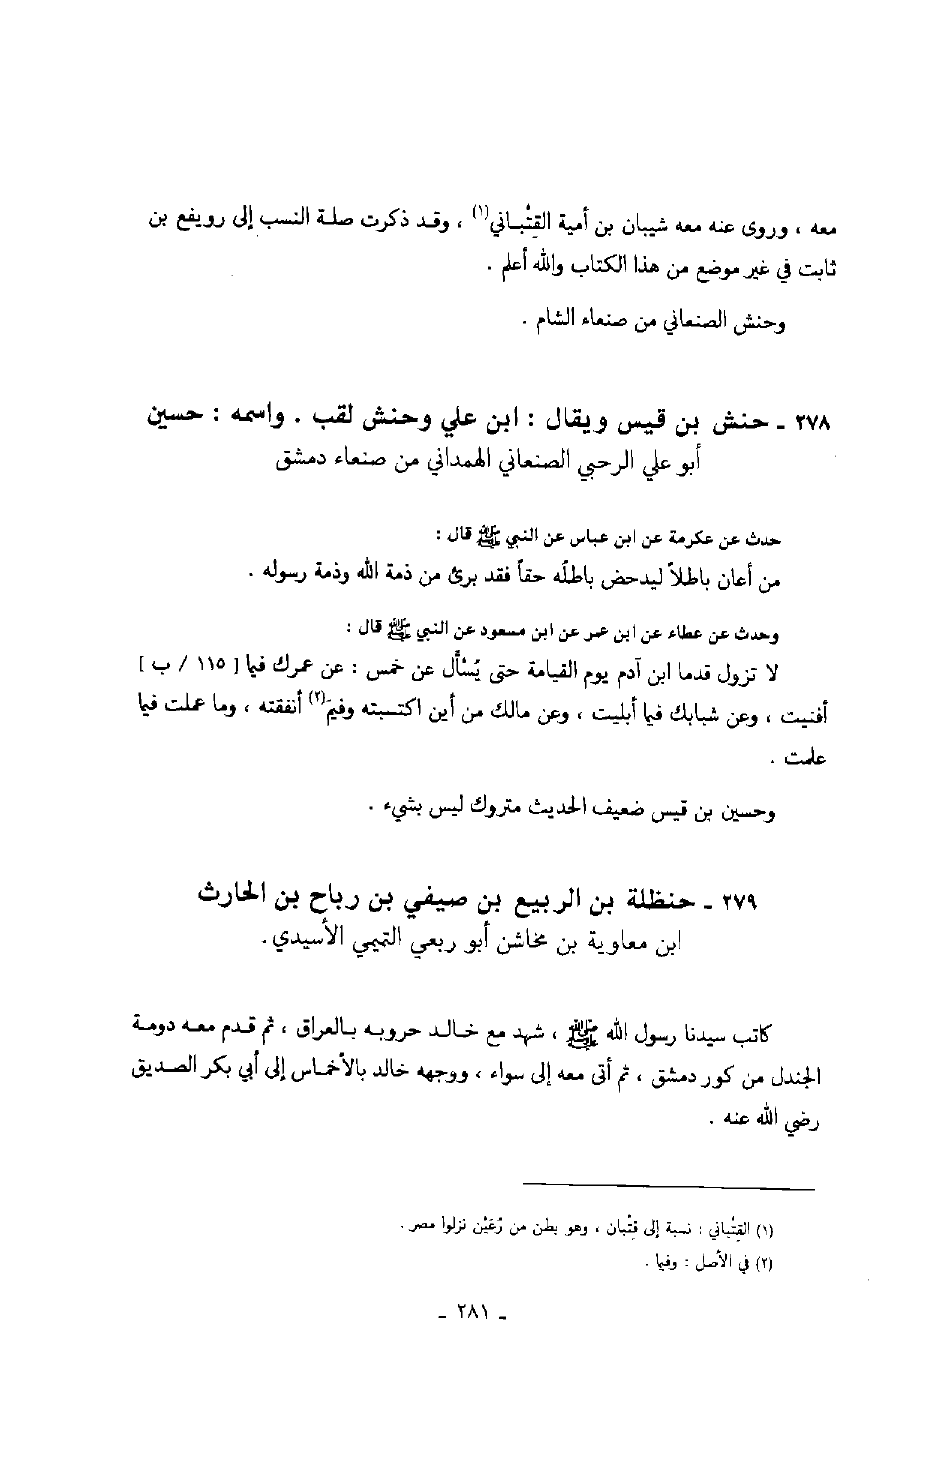 معه ، وروى عنه معه شيبان بن أمية القِتْباني(١) ، وقد ذكرت صلة النسب إلى رويفع بن
ثابت في غير موضع من هذا الكتاب والله أعلم .
وحنش الصنعاني من صنعاء الشام .
٢٧٨ ـ حنش بن قيس ويقال : ابن علي وحنش لقب . واسمه : حسين
أبو علي الرحبي الصنعاني الهمداني من صنعاء دمشق
حدث عن عكرمة عن ابن عباس عن النبي ﷺ قال :
من أعان باطلاً ليدحض باطلُه حقاً فقد برئ من ذمة الله وذمة رسوله .
وحدث عن عطاء عن ابن عمر عن ابن مسعود عن النبي ﷺ قال :
لا تزول قدما ابن آدم يوم القيامة حتى يُسْأَل عن خمس : عن عمرك فيما [ ١١٥ / ب ]
أفنيت ، وعن شبابك فيما أبليت ، وعن مالك من أين اكتسبته وفيمَ(٢) أنفقته ، وما عملت فيما
علمت .
وحسين بن قيس ضعيف الحديث متروك ليس بشيء .
٢٧٩ ـ حنظلة بن الربيع بن صيفي بن رباح بن الحارث
ابن معاوية بن مخاشن أبو ربعي التميمي الأسيدي .
كاتب سيدنا رسول الله ﷺ ، شهد مع خالد حروبه بالعراق ، ثم قدم معه دومة
الجندل من كور دمشق ، ثم أتى معه إلى سواء ، ووجهه خالد بالأخماس إلى أبي بكر الصديق
رضي الله عنه .
(١) القِتْباني : نسبة إلى قِتْبان ، وهو بطن من رُعَيْن نزلوا مصر .
(٢) في الأصل : وفيما .
ـ ٢٨١ ـ